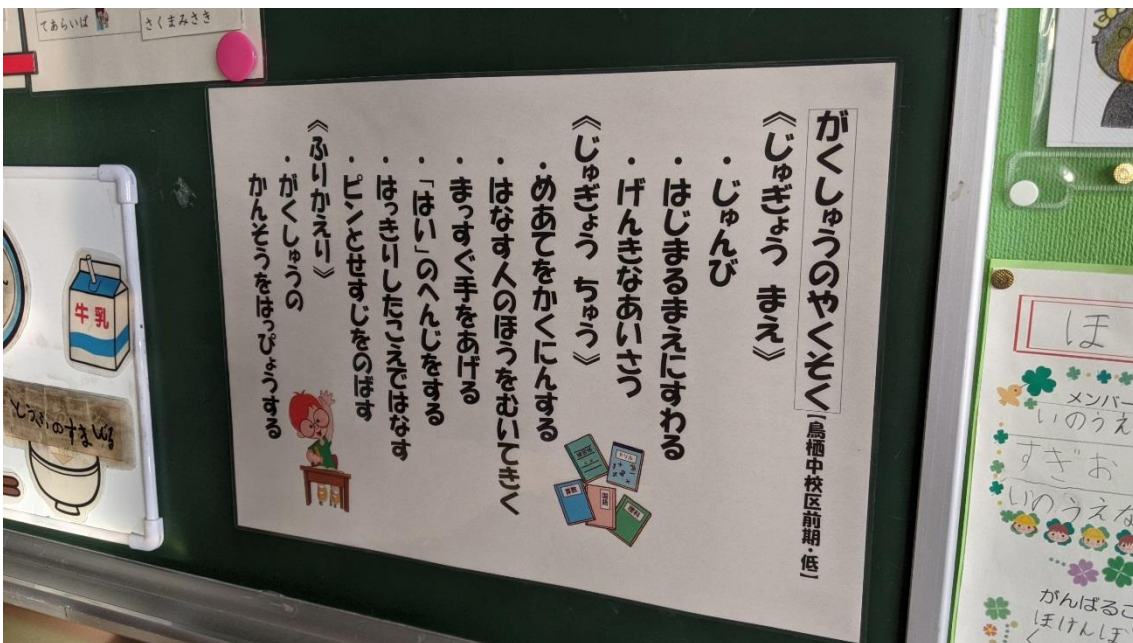 てあらいば
さくまみさき
がくしゅうのやくそく【鳥栖中校区前期・低】
《じゅぎょう まえ》
・じゅんび
・はじまるまえにすわる
・げんきなあいさつ
《じゅぎょう ちゅう》
・めあてをかくにんする
・はなす人のほうをむいてきく
・まっすぐ手をあげる
・「はい」のへんじをする
・はっきりしたこえではなす
・ピンとせすじをのばす
《ふりかえり》
・がくしゅうの
かんそうをはっぴょうする
ドリル
算数
国語
理科
牛乳
ほ
メンバー
いのうえ
すぎお
いのうえな
がんばるこ
ほけんしぼ